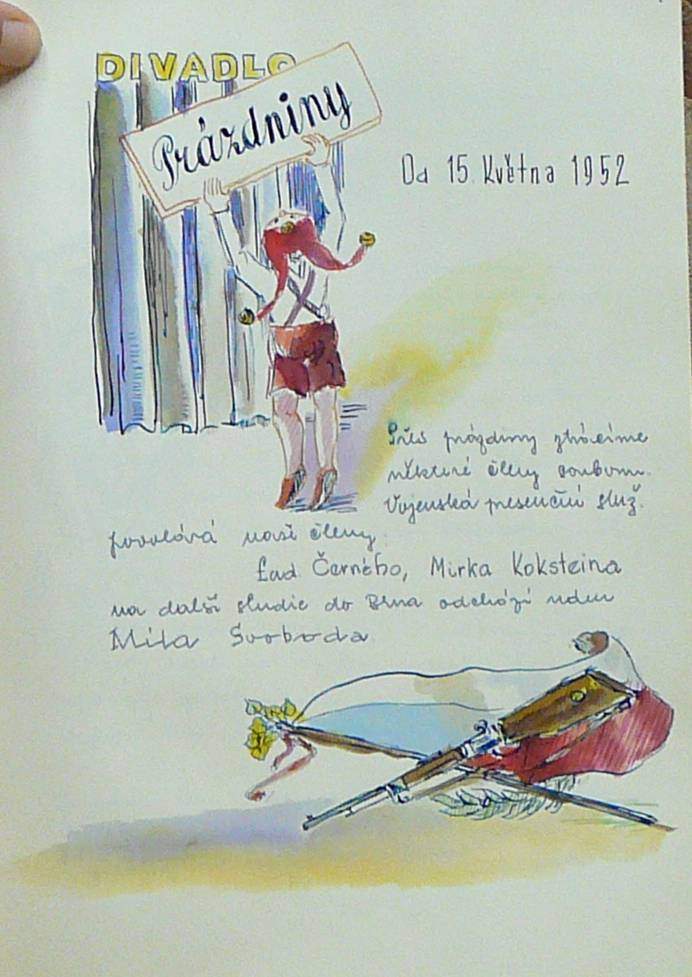 DIVADLO
Prázdniny
Od 15. Května 1952
Přes prázdniny ztrácíme
některé členy souboru.
Vojenská presenční služ.
povolává naši členy:
Lad Černého, Mirka Koksteina
na další studie do Brna odchází
Míla Svoboda